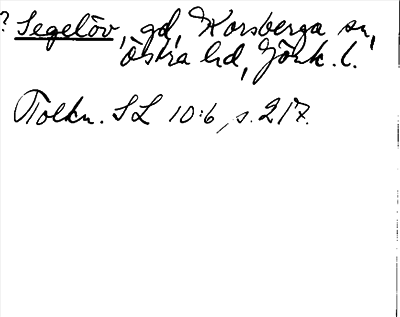 ? Segelöv, gd, Korsberga sn,
Östra hd, Jönk. l.
Tolkn. SL 10:6, s. 217.